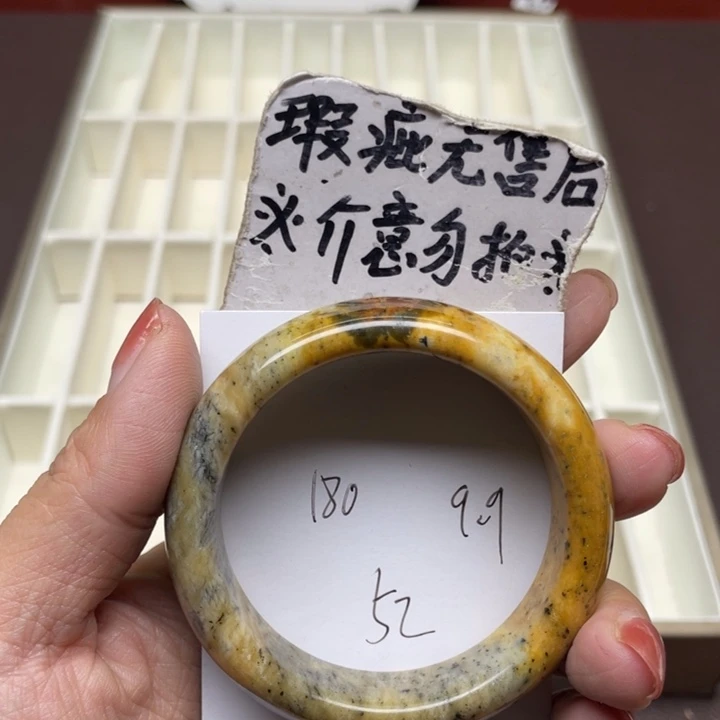 瑕疵无售后
※介意勿拍※
180 9.9
52